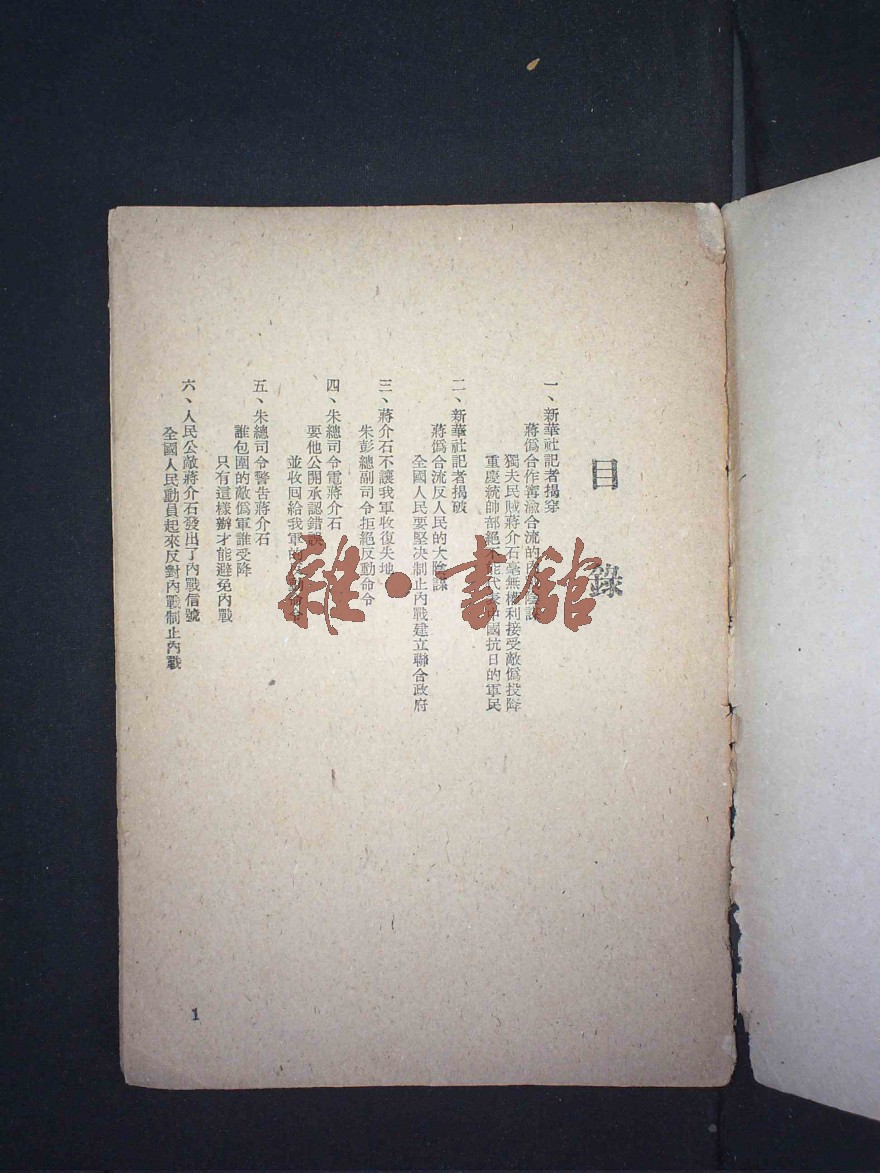 目錄
一、新華社記者揭穿
蔣僞合作寗渝合流的
獨夫民賊蔣介石毫無權利接受敵僞投降
重慶統帥部絕不能代表中國抗日的軍民
二、新華社記者揭破
蔣僞合流反人民的大陰謀
全國人民要堅决制止內戰建立聯合政府
三、蔣介石不讓我軍收復失地
朱彭總副司令拒絕反動命令
四、朱總司令電蔣介石
要他公開承認錯誤
並收囘給我軍的命令
五、朱總司令警告蔣介石
誰包圍的敵僞軍誰受降
只有這樣辦才能避免內戰
六、人民公敵蔣介石發出了內戰信號
全國人民動員起來反對內戰制止內戰
1
雜·書館